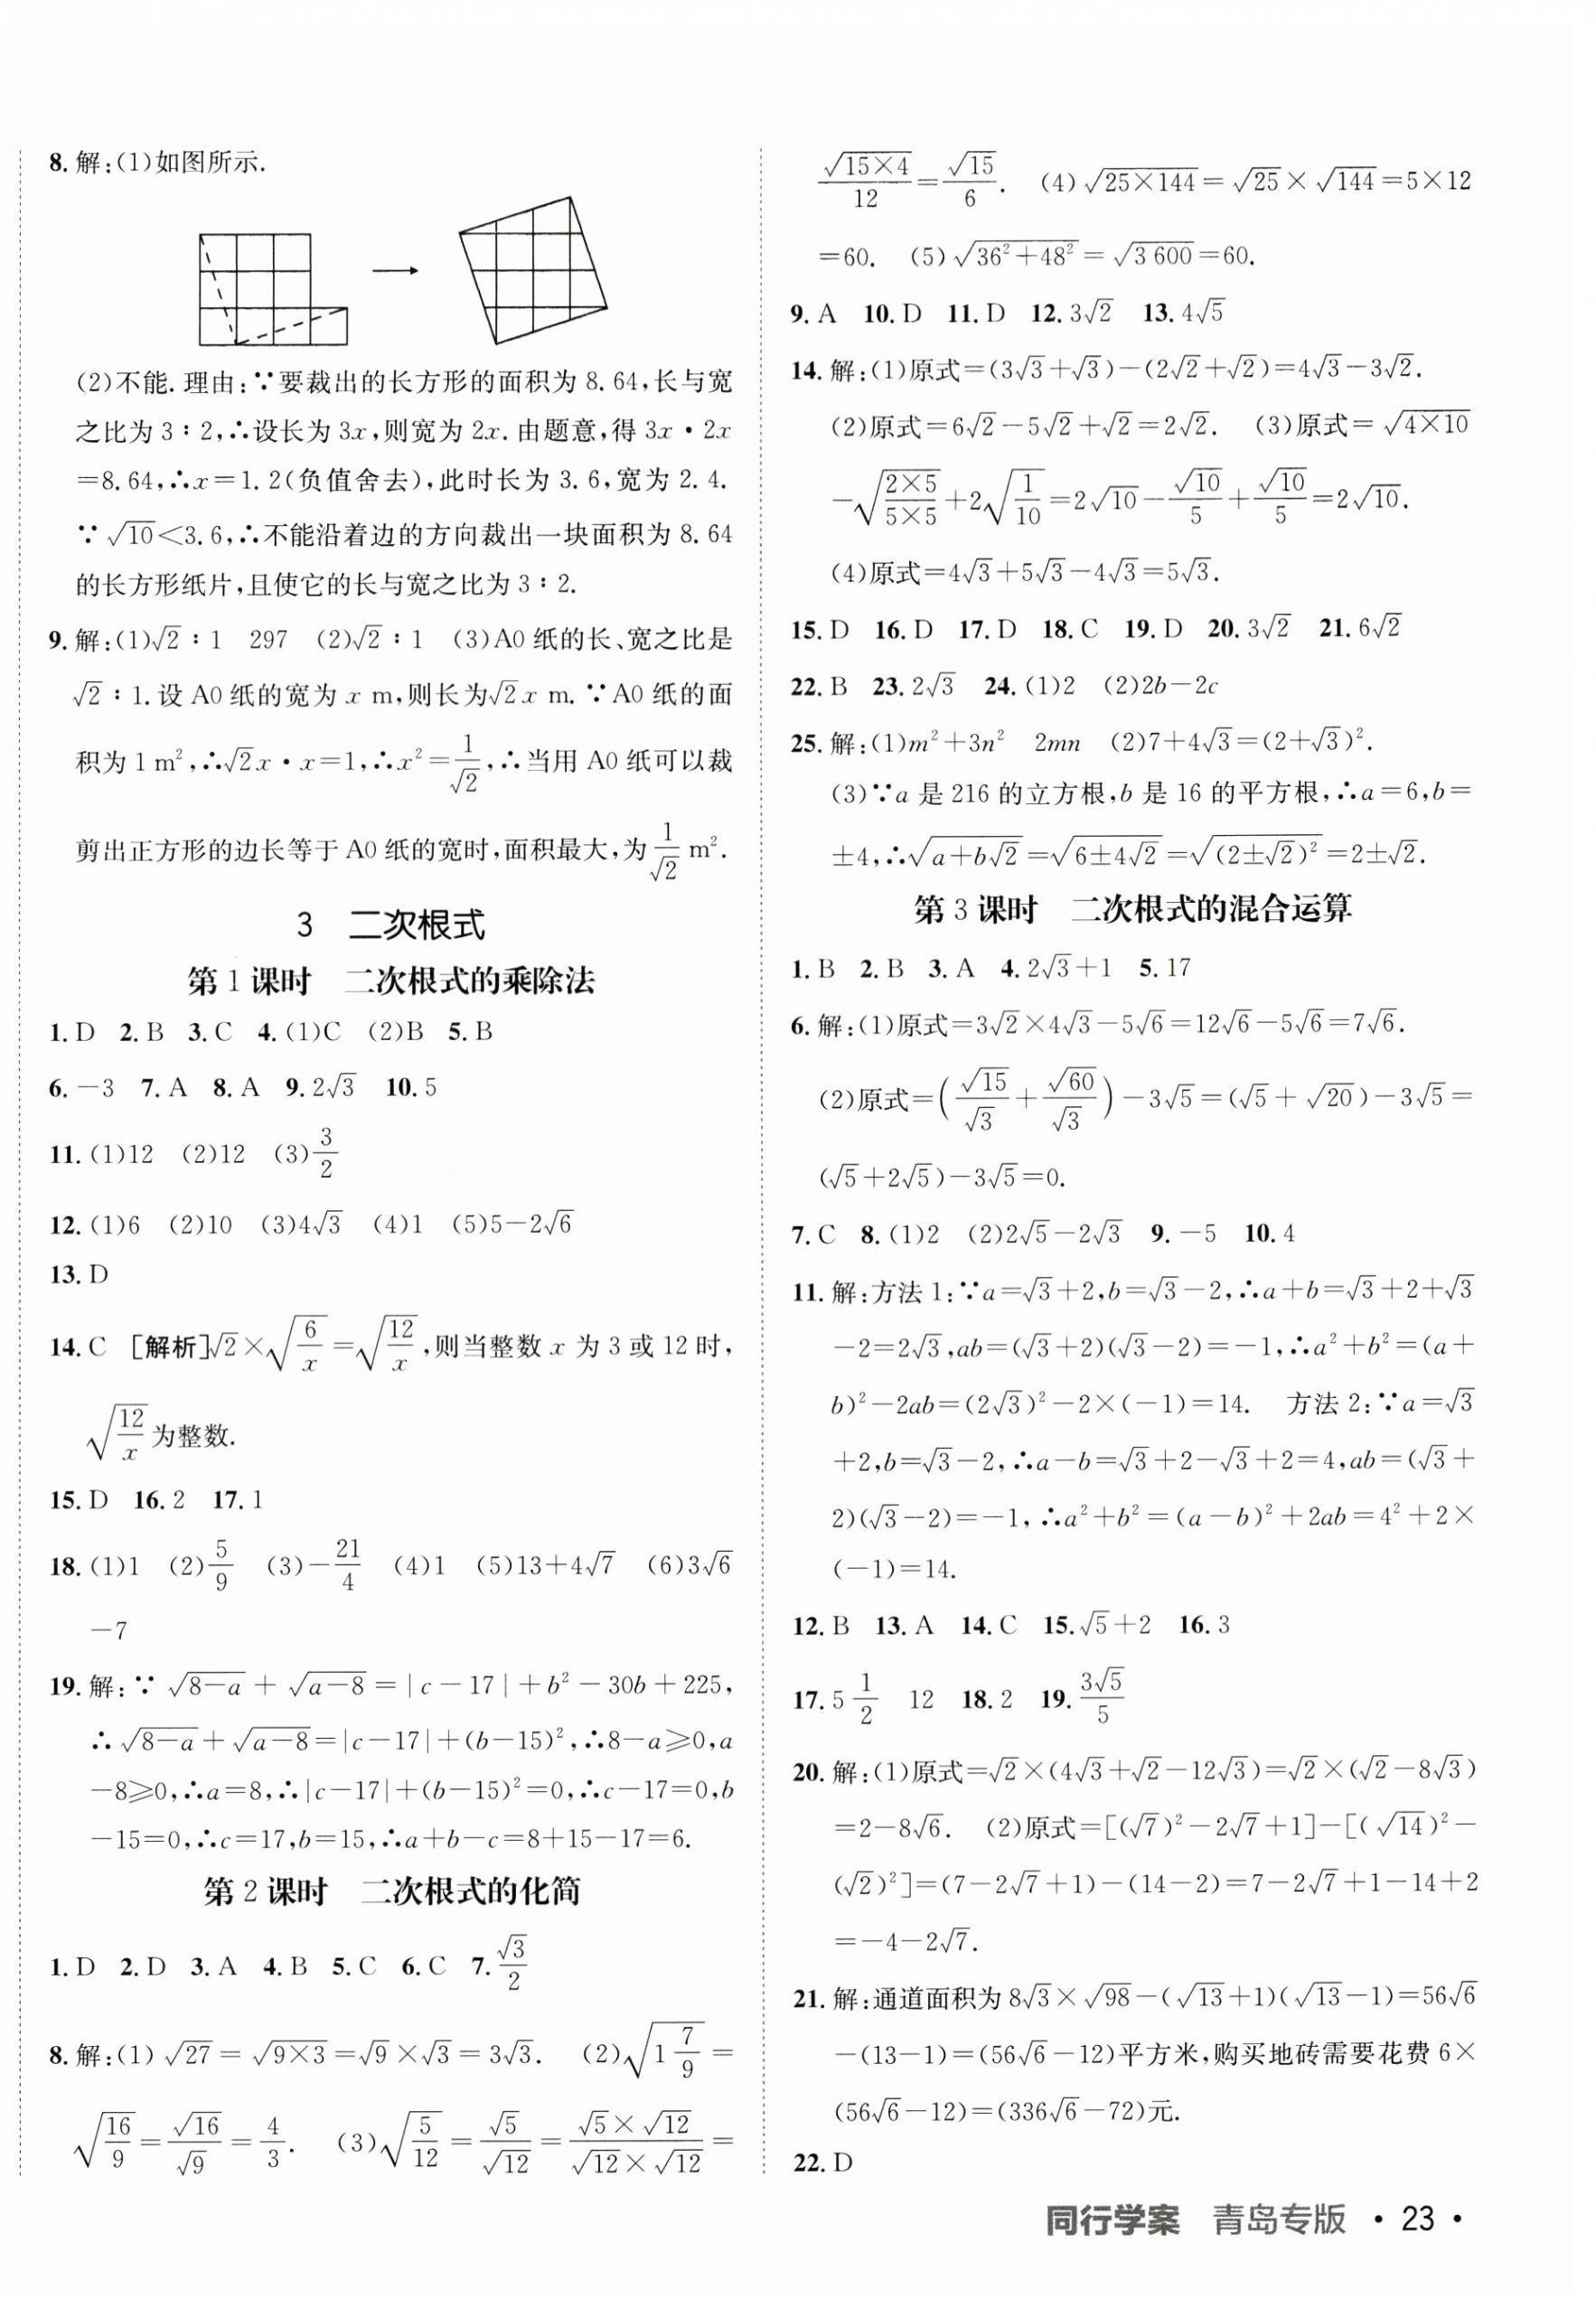 8. 解:(1)如图所示.
(2)不能. 理由:∵要裁出的长方形的面积为 8.64,长与宽
之比为 3∶2,∴设长为 3x,则宽为 2x. 由题意,得 3x·2x
=8.64,∴x=1.2(负值舍去),此时长为 3.6,宽为 2.4.
∵√10<3.6,∴不能沿着边的方向裁出一块面积为 8.64
的长方形纸片,且使它的长与宽之比为 3∶2.
9. 解:(1)√2∶1 297 (2)√2∶1 (3)A0 纸的长、宽之比是
√2∶1. 设 A0 纸的宽为 x m,则长为√2x m. ∵A0 纸的面
积为 1 m²,∴√2x·x=1,∴x²=1/√2,∴当用 A0 纸可以裁
剪出正方形的边长等于 A0 纸的宽时,面积最大,为 1/√2 m².
3 二次根式
第 1 课时 二次根式的乘除法
1. D 2. B 3. C 4. (1)C (2)B 5. B
6. −3 7. A 8. A 9. 2√3 10. 5
11. (1)12 (2)12 (3)3/2
12. (1)6 (2)10 (3)4√3 (4)1 (5)5−2√6
13. D
14. C [解析]√2×√(6/x)=√(12/x),则当整数 x 为 3 或 12 时,
√(12/x)为整数.
15. D 16. 2 17. 1
18. (1)1 (2)5/9 (3)−21/4 (4)1 (5)13+4√7 (6)3√6
−7
19. 解:∵√(8−a)+√(a−8)=|c−17|+b²−30b+225,
∴√(8−a)+√(a−8)=|c−17|+(b−15)²,∴8−a≥0,a
−8≥0,∴a=8,∴|c−17|+(b−15)²=0,∴c−17=0,b
−15=0,∴c=17,b=15,∴a+b−c=8+15−17=6.
第 2 课时 二次根式的化简
1. D 2. D 3. A 4. B 5. C 6. C 7. √3/2
8. 解:(1)√27=√(9×3)=√9×√3=3√3. (2)√(1 7/9)=
√(16/9)=√16/√9=4/3. (3)√(5/12)=√5/√12=(√5×√12)/(√12×√12)=
√(15×4)/12=√15/6. (4)√(25×144)=√25×√144=5×12
=60. (5)√(36²+48²)=√3 600=60.
9. A 10. D 11. D 12. 3√2 13. 4√5
14. 解:(1)原式=(3√3+√3)−(2√2+√2)=4√3−3√2.
(2)原式=6√2−5√2+√2=2√2. (3)原式=√(4×10)
−√((2×5)/(5×5))+2√(1/10)=2√10−√10/5+√10/5=2√10.
(4)原式=4√3+5√3−4√3=5√3.
15. D 16. D 17. D 18. C 19. D 20. 3√2 21. 6√2
22. B 23. 2√3 24. (1)2 (2)2b−2c
25. 解:(1)m²+3n² 2mn (2)7+4√3=(2+√3)².
(3)∵a 是 216 的立方根,b 是 16 的平方根,∴a=6,b=
±4,∴√(a+b√2)=√(6±4√2)=√((2±√2)²)=2±√2.
第 3 课时 二次根式的混合运算
1. B 2. B 3. A 4. 2√3+1 5. 17
6. 解:(1)原式=3√2×4√3−5√6=12√6−5√6=7√6.
(2)原式=(√15/√3+√60/√3)−3√5=(√5+√20)−3√5=
(√5+2√5)−3√5=0.
7. C 8. (1)2 (2)2√5−2√3 9. −5 10. 4
11. 解:方法 1:∵a=√3+2,b=√3−2,∴a+b=√3+2+√3
−2=2√3,ab=(√3+2)(√3−2)=−1,∴a²+b²=(a+
b)²−2ab=(2√3)²−2×(−1)=14. 方法 2:∵a=√3
+2,b=√3−2,∴a−b=√3+2−√3+2=4,ab=(√3+
2)(√3−2)=−1,∴a²+b²=(a−b)²+2ab=4²+2×
(−1)=14.
12. B 13. A 14. C 15. √5+2 16. 3
17. 5 1/2 12 18. 2 19. 3√5/5
20. 解:(1)原式=√2×(4√3+√2−12√3)=√2×(√2−8√3)
=2−8√6. (2)原式=[(√7)²−2√7+1]−[(√14)²−
(√2)²]=(7−2√7+1)−(14−2)=7−2√7+1−14+2
=−4−2√7.
21. 解:通道面积为 8√3×√98−(√13+1)(√13−1)=56√6
−(13−1)=(56√6−12)平方米,购买地砖需要花费 6×
(56√6−12)=(336√6−72)元.
22. D
同行学案 青岛专版 · 23 ·